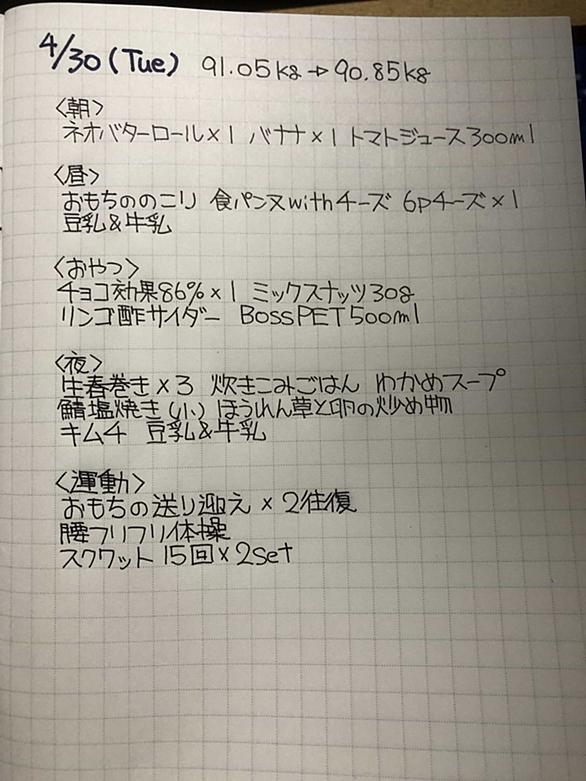 4/30(Tue) 91.05kg→90.85kg
〈朝〉
ネオバターロール×1 バナナ×1 トマトジュース300ml
〈昼〉
おもちののこり 食パンヌwithチーズ 6pチーズ×1
豆乳&牛乳
〈おやつ〉
チョコ効果86%×1 ミックスナッツ30g
リンゴ酢サイダー BossPET500ml
〈夜〉
生春巻き×3 炊きこみごはん わかめスープ
鯖塩焼き(小) ほうれん草と卵の炒め物
キムチ 豆乳&牛乳
〈運動〉
おもちの送り迎え×2往復
腰フリフリ体操
スクワット 15回×2set